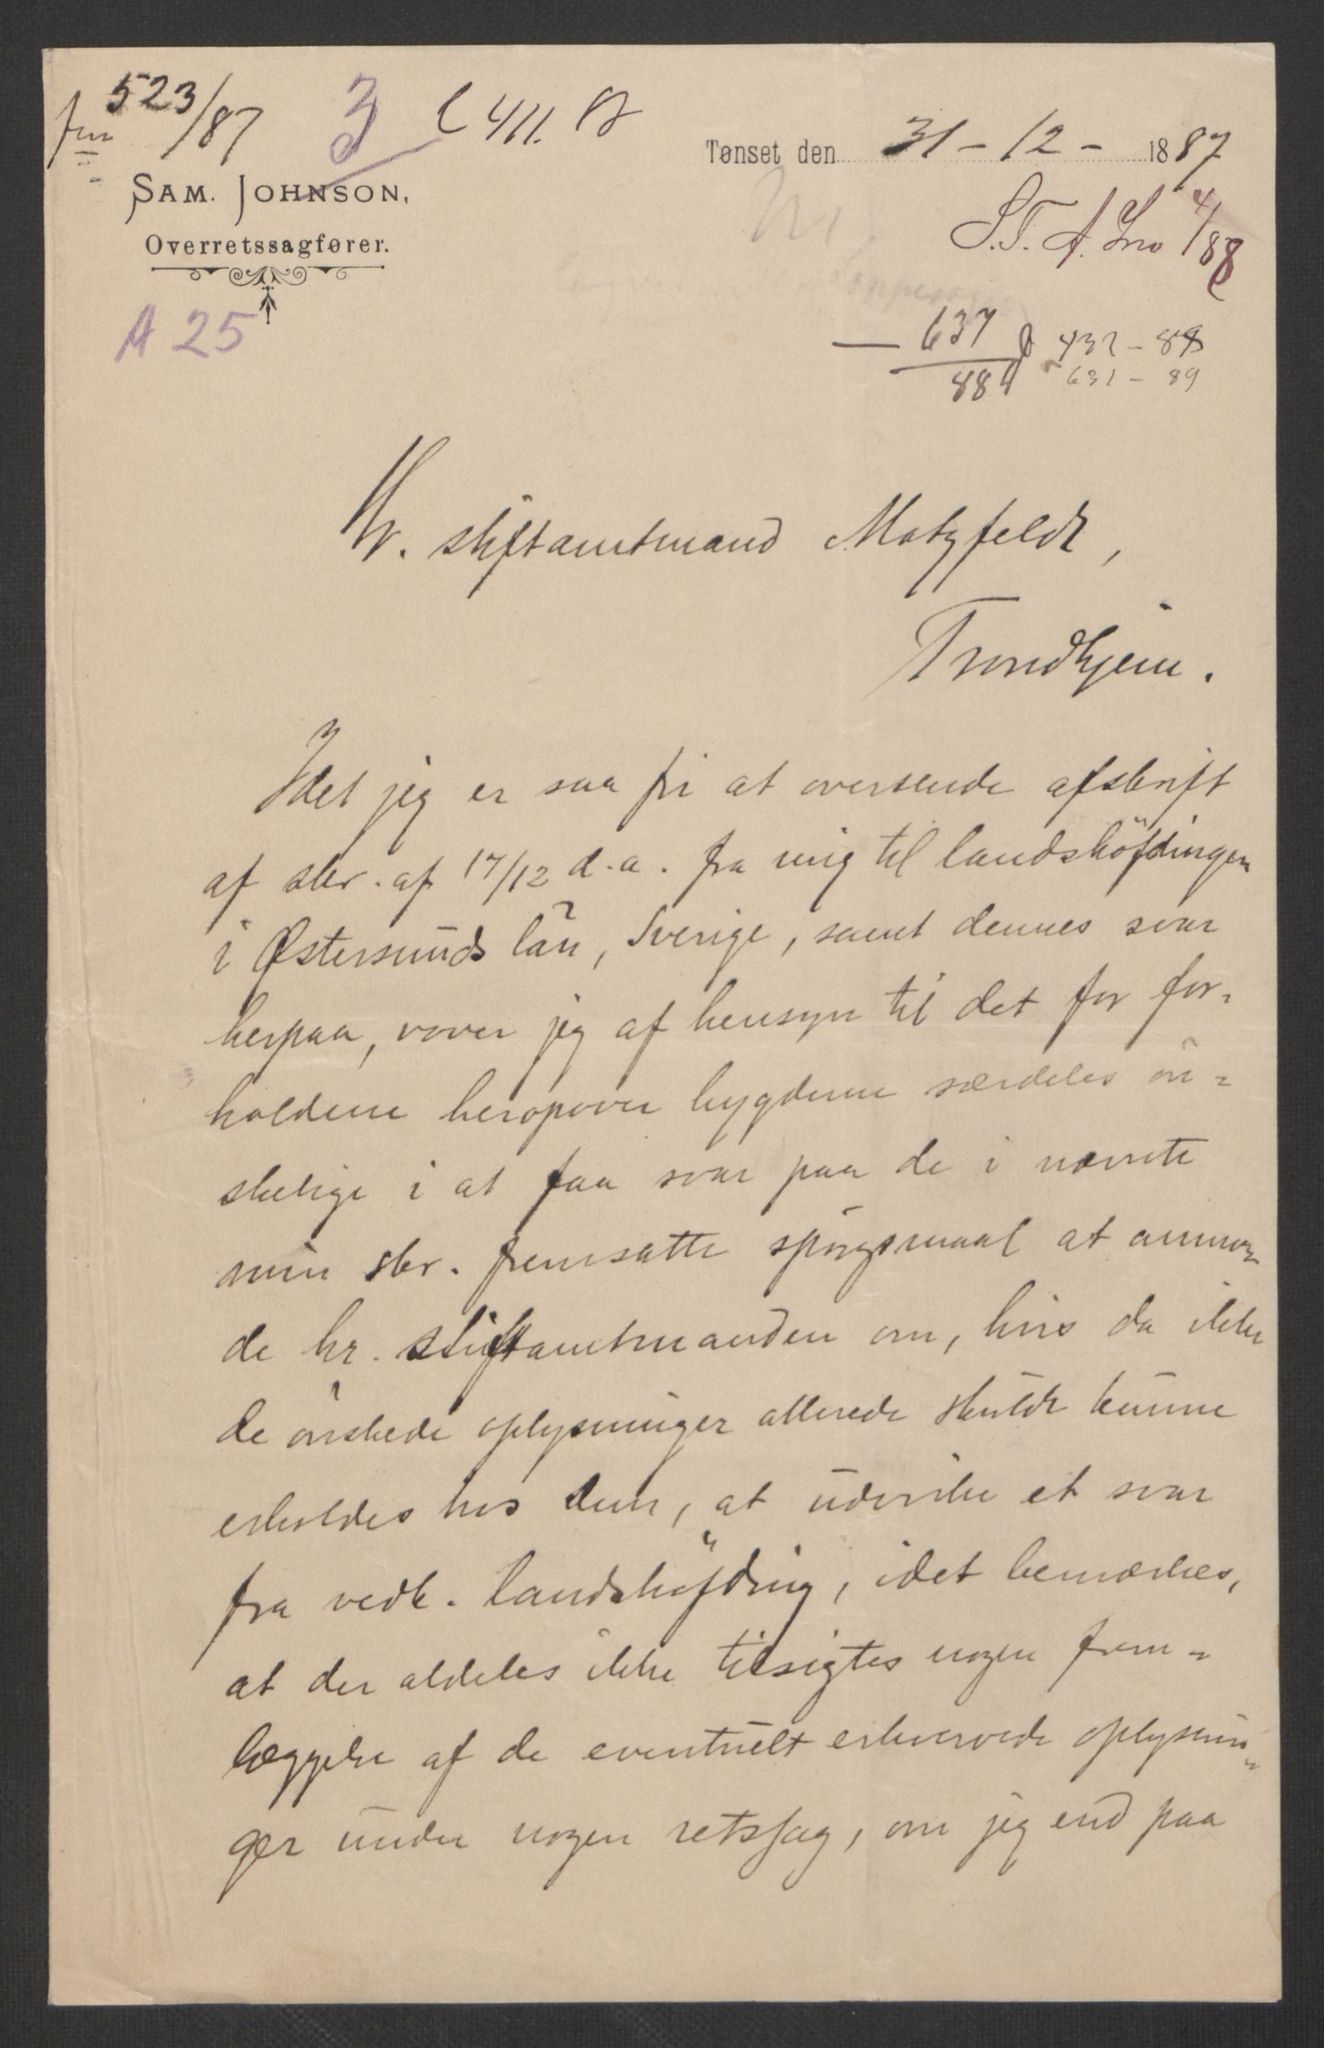 523/87 3 C 411. B
Tønset den 31 - 12 - 1887
SAM. JOHNSON,
Overretssagfører.
S.T. A. Jno 4/88
A 25
637 432 - 89
88 631 - 89
Hr. stiftamtmand Motzfeldt,
Trondhjem.
Idet jeg er saa fri at oversende afskrift
af skr. af 17/12 d. a. fra mig til landshöfdingen
i Østersunds län, Sverige, samt dennes svar
herpaa, vover jeg af hensyn til det for for-
holdene heropover bygderne særdeles ön-
skelige i at faa svar paa de i nævnte
min skr. fremsatte spörgsmaal at anmo-
de hr. stiftamtmanden om, hvis da ikke
de önskede oplysninger allerede skulde kunne
erholdes hos Dem, at udvirke et svar
fra vedk. landshöfding, idet bemærkes,
at der aldeles ikke tilsigtes nogen frem-
læggelse af de eventuelt erhvervede oplysnin-
ger under nogen retssag, om jeg end paa